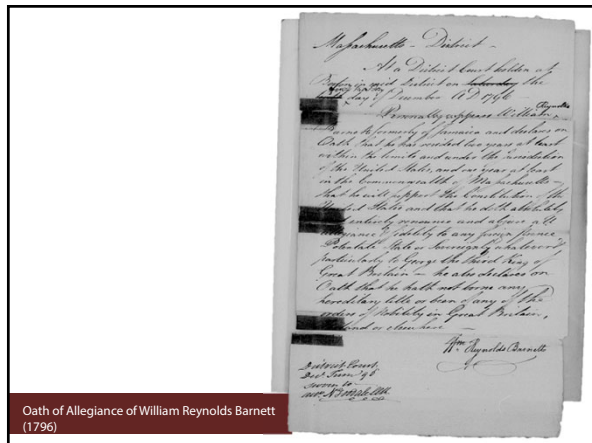 Massachusetts - District -
At a District Court holden at
Boston in said District on the
day of December A D 1796
Reynolds
Personally appears William
Barnett formerly of Jamaica and declares on
Oath that he has resided two years at least
within the limits and under the jurisdiction
of the United States, and one year at least
in the Commonwealth of Massachusetts
that he will support the Constitution of the
United States and that he doth absolutely
entirely renounce and abjure all
allegiance & fidelity to any foreign prince
Potentate State or Sovereignty whatever &
particularly to George the Third King of
Great Britain — he also declares on
Oath that he hath not borne any
hereditary title or been of any of the
orders of Nobility in Great Britain,
or elsewhere —
Wm Reynolds Barnett
District Court
Decr Term 96
sworn to
Oath of Allegiance of William Reynolds Barnett
(1796)